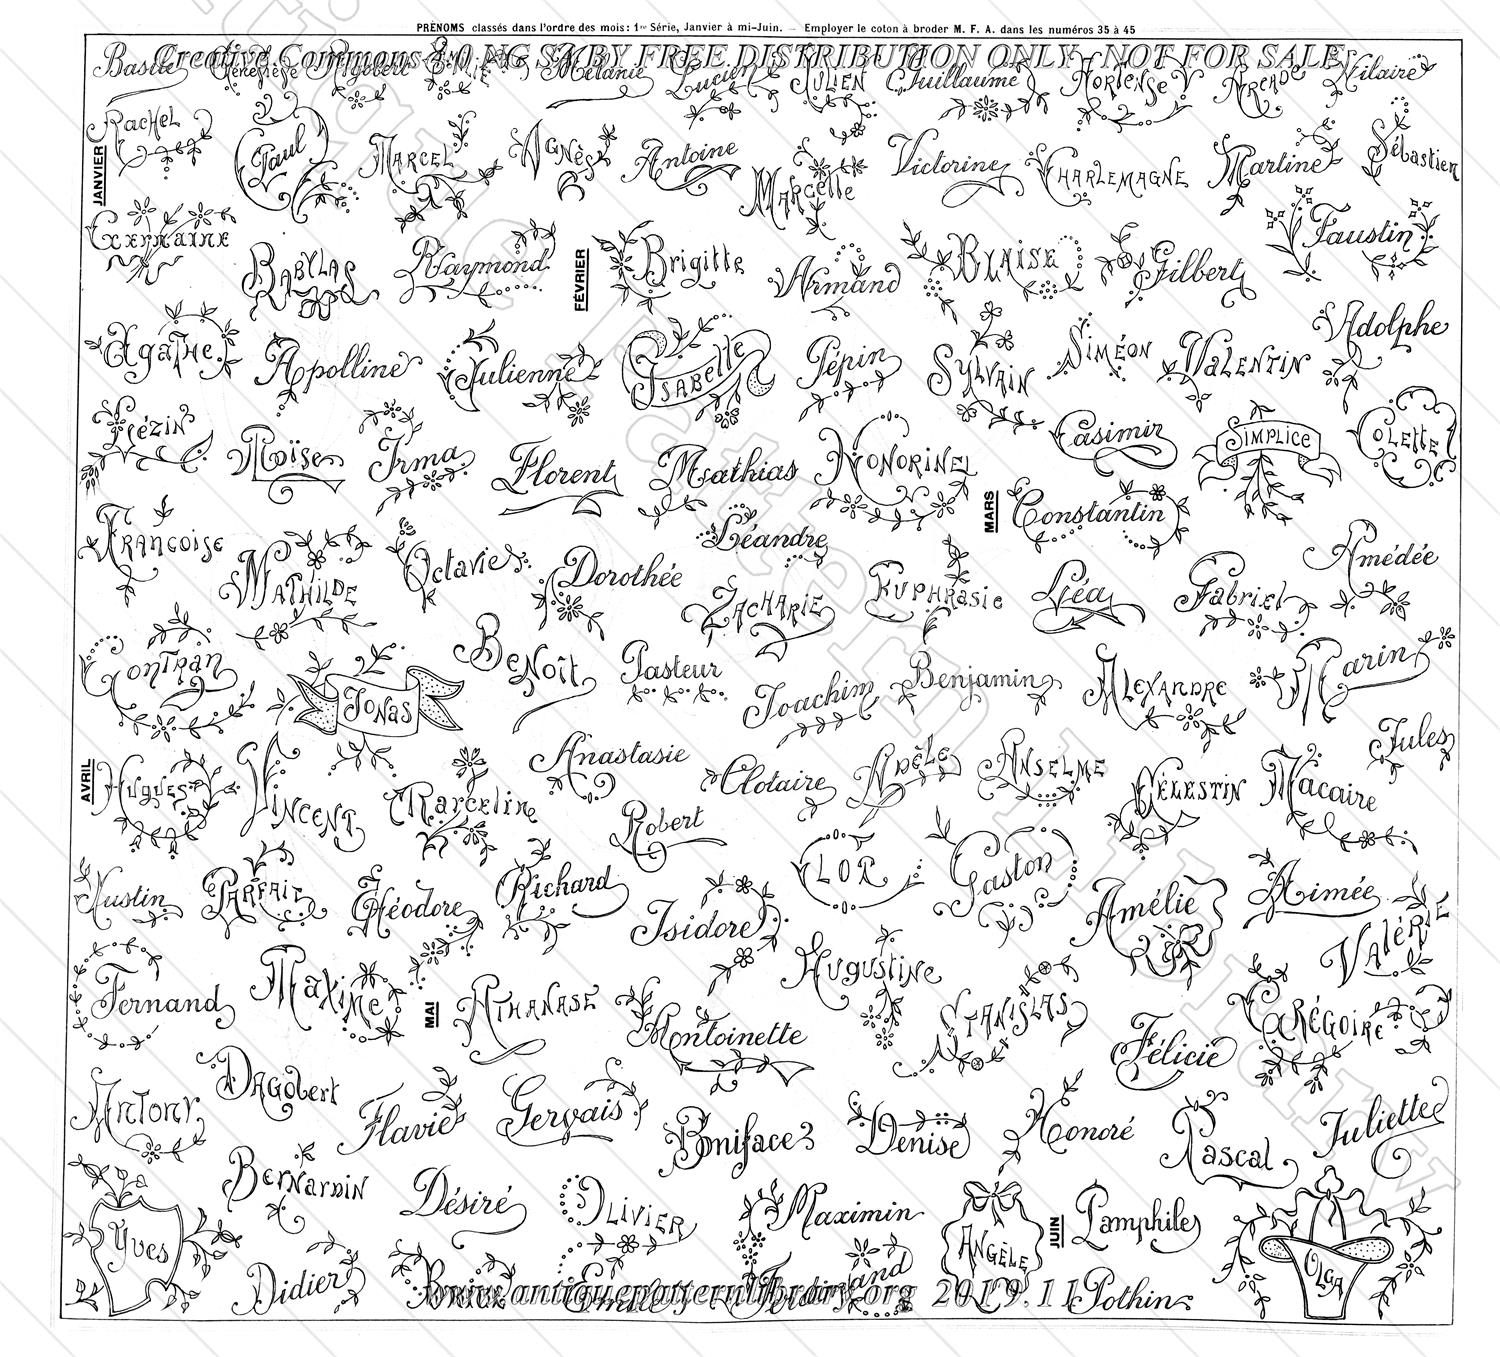 PRÉNOMS classés dans l'ordre des mois: 1re Série, Janvier à mi-Juin. — Employer le coton à broder M. F. A. dans les numéros 35 à 45
Creative Commons 4.0 NC SA BY FREE DISTRIBUTION ONLY - NOT FOR SALE
Basile Geneviève Rigobert Mélanie Lucien Julien Guillaume Hortense Arcade Hilaire
JANVIER
Rachel Paul Marcel Agnès Antoine Marcelle Victorine Charlemagne Martine Sébastien
Germaine Babylas Raymond
FÉVRIER
Brigitte Armand Blaise Gilbert Faustin
Agathe Apolline Julienne Isabelle Pépin Sylvain Siméon Valentin Adolphe
Lézin Moïse Irma Florent Mathias Honorine Casimir Simplice Colette
MARS
Constantin
Françoise Mathilde Octavie Dorothée Léandre Zacharie Euphrasie Léa Gabriel Amédée
Gontran Jonas Benoît Pasteur Joachim Benjamin Alexandre Marin
AVRIL
Hugues Vincent Marceline Anastasie Robert Clotaire Adèle Anselme Célestin Macaire Jules
Justin Parfait Théodore Richard Isidore Flor Gaston Amélie Aimée Valérie
Fernand Maxime
MAI
Athanase Antoinette Augustine Stanislas Félicie Grégoire
Antony Dagobert Flavie Gervais Boniface Denise Honoré Pascal Juliette
Yves Bernardin Désiré Olivier Maximin Angèle
JUIN
Pamphile Olga
Didier Emile Ferdinand Pothin
www.antiquepatternlibrary.org 2019.11
Antique Pattern Library